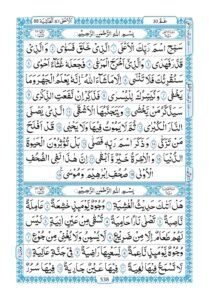 بِسْمِ اللّٰهِ الرَّحْمٰنِ الرَّحِيْمِ
سَبِّحِ اسْمَ رَبِّكَ الْاَعْلَى الَّذِىْ خَلَقَ فَسَوّٰى وَالَّذِىْ
قَدَّرَ فَهَدٰى وَالَّذِىْٓ اَخْرَجَ الْمَرْعٰى فَجَعَلَهٗ غُثَآءً
اَحْوٰى سَنُقْرِئُكَ فَلَا تَنْسٰٓى اِلَّا مَا شَآءَ اللّٰهُ اِنَّهٗ يَعْلَمُ الْجَهْرَ وَمَا
يَخْفٰى وَنُيَسِّرُكَ لِلْيُسْرٰى فَذَكِّرْ اِنْ نَّفَعَتِ الذِّكْرٰى
سَيَذَّكَّرُ مَنْ يَّخْشٰى وَيَتَجَنَّبُهَا الْاَشْقَى الَّذِىْ يَصْلَى النَّارَ
الْكُبْرٰى ثُمَّ لَا يَمُوْتُ فِيْهَا وَلَا يَحْيٰى قَدْ اَفْلَحَ مَنْ
تَزَكّٰى وَذَكَرَ اسْمَ رَبِّهٖ فَصَلّٰى بَلْ تُؤْثِرُوْنَ الْحَيٰوةَ
الدُّنْيَا وَالْاٰخِرَةُ خَيْرٌ وَّاَبْقٰى اِنَّ هٰذَا لَفِى الصُّحُفِ
الْاُوْلٰى صُحُفِ اِبْرٰهِيْمَ وَمُوْسٰى
بِسْمِ اللّٰهِ الرَّحْمٰنِ الرَّحِيْمِ
هَلْ اَتٰىكَ حَدِيْثُ الْغَاشِيَةِ وُجُوْهٌ يَّوْمَئِذٍ خَاشِعَةٌ عَامِلَةٌ
نَّاصِبَةٌ تَصْلٰى نَارًا حَامِيَةً تُسْقٰى مِنْ عَيْنٍ اٰنِيَةٍ لَيْسَ
لَهُمْ طَعَامٌ اِلَّا مِنْ ضَرِيْعٍ لَّا يُسْمِنُ وَلَا يُغْنِىْ مِنْ جُوْعٍ
وُجُوْهٌ يَّوْمَئِذٍ نَّاعِمَةٌ لِّسَعْيِهَا رَاضِيَةٌ فِىْ جَنَّةٍ عَالِيَةٍ
لَّا تَسْمَعُ فِيْهَا لَاغِيَةً فِيْهَا عَيْنٌ جَارِيَةٌ فِيْهَا سُرُرٌ
538